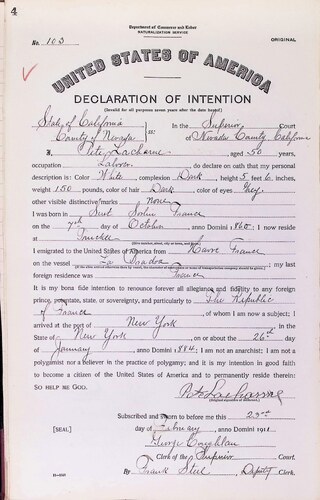 4
Department of Commerce and Labor
NATURALIZATION SERVICE
No. 103
ORIGINAL
UNITED STATES OF AMERICA
DECLARATION OF INTENTION
(Invalid for all purposes seven years after the date hereof)
State of California
County of Nevada
ss:
In the Superior Court
of Nevada County California
I, Pete Lacharne, aged 50 years,
occupation Laborer, do declare on oath that my personal
description is: Color White, complexion Dark, height 5 feet 6 inches,
weight 150 pounds, color of hair Dark, color of eyes Grey
other visible distinctive marks none
I was born in France
on the 7th day of October, anno Domini 1860; I now reside
at Truckee
I emigrated to the United States of America from Havre France
on the vessel La; my last
foreign residence was France
It is my bona fide intention to renounce forever all allegiance and fidelity to any foreign
prince, potentate, state, or sovereignty, and particularly to The Republic
of France, of whom I am now a subject; I
arrived at the port of New York, in the
State of New York on or about the 26th day
of January, anno Domini 1884; I am not an anarchist; I am not a
polygamist nor a believer in the practice of polygamy; and it is my intention in good faith
to become a citizen of the United States of America and to permanently reside therein:
SO HELP ME GOD.
Subscribed and sworn to before me this 23rd
[SEAL] day of February, anno Domini 1911
George
Clerk of the Superior Court.
By Frank Steel Deputy Clerk.